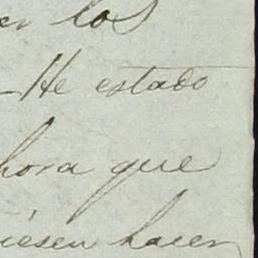 er los
-He estado
hora que
iesen hacer